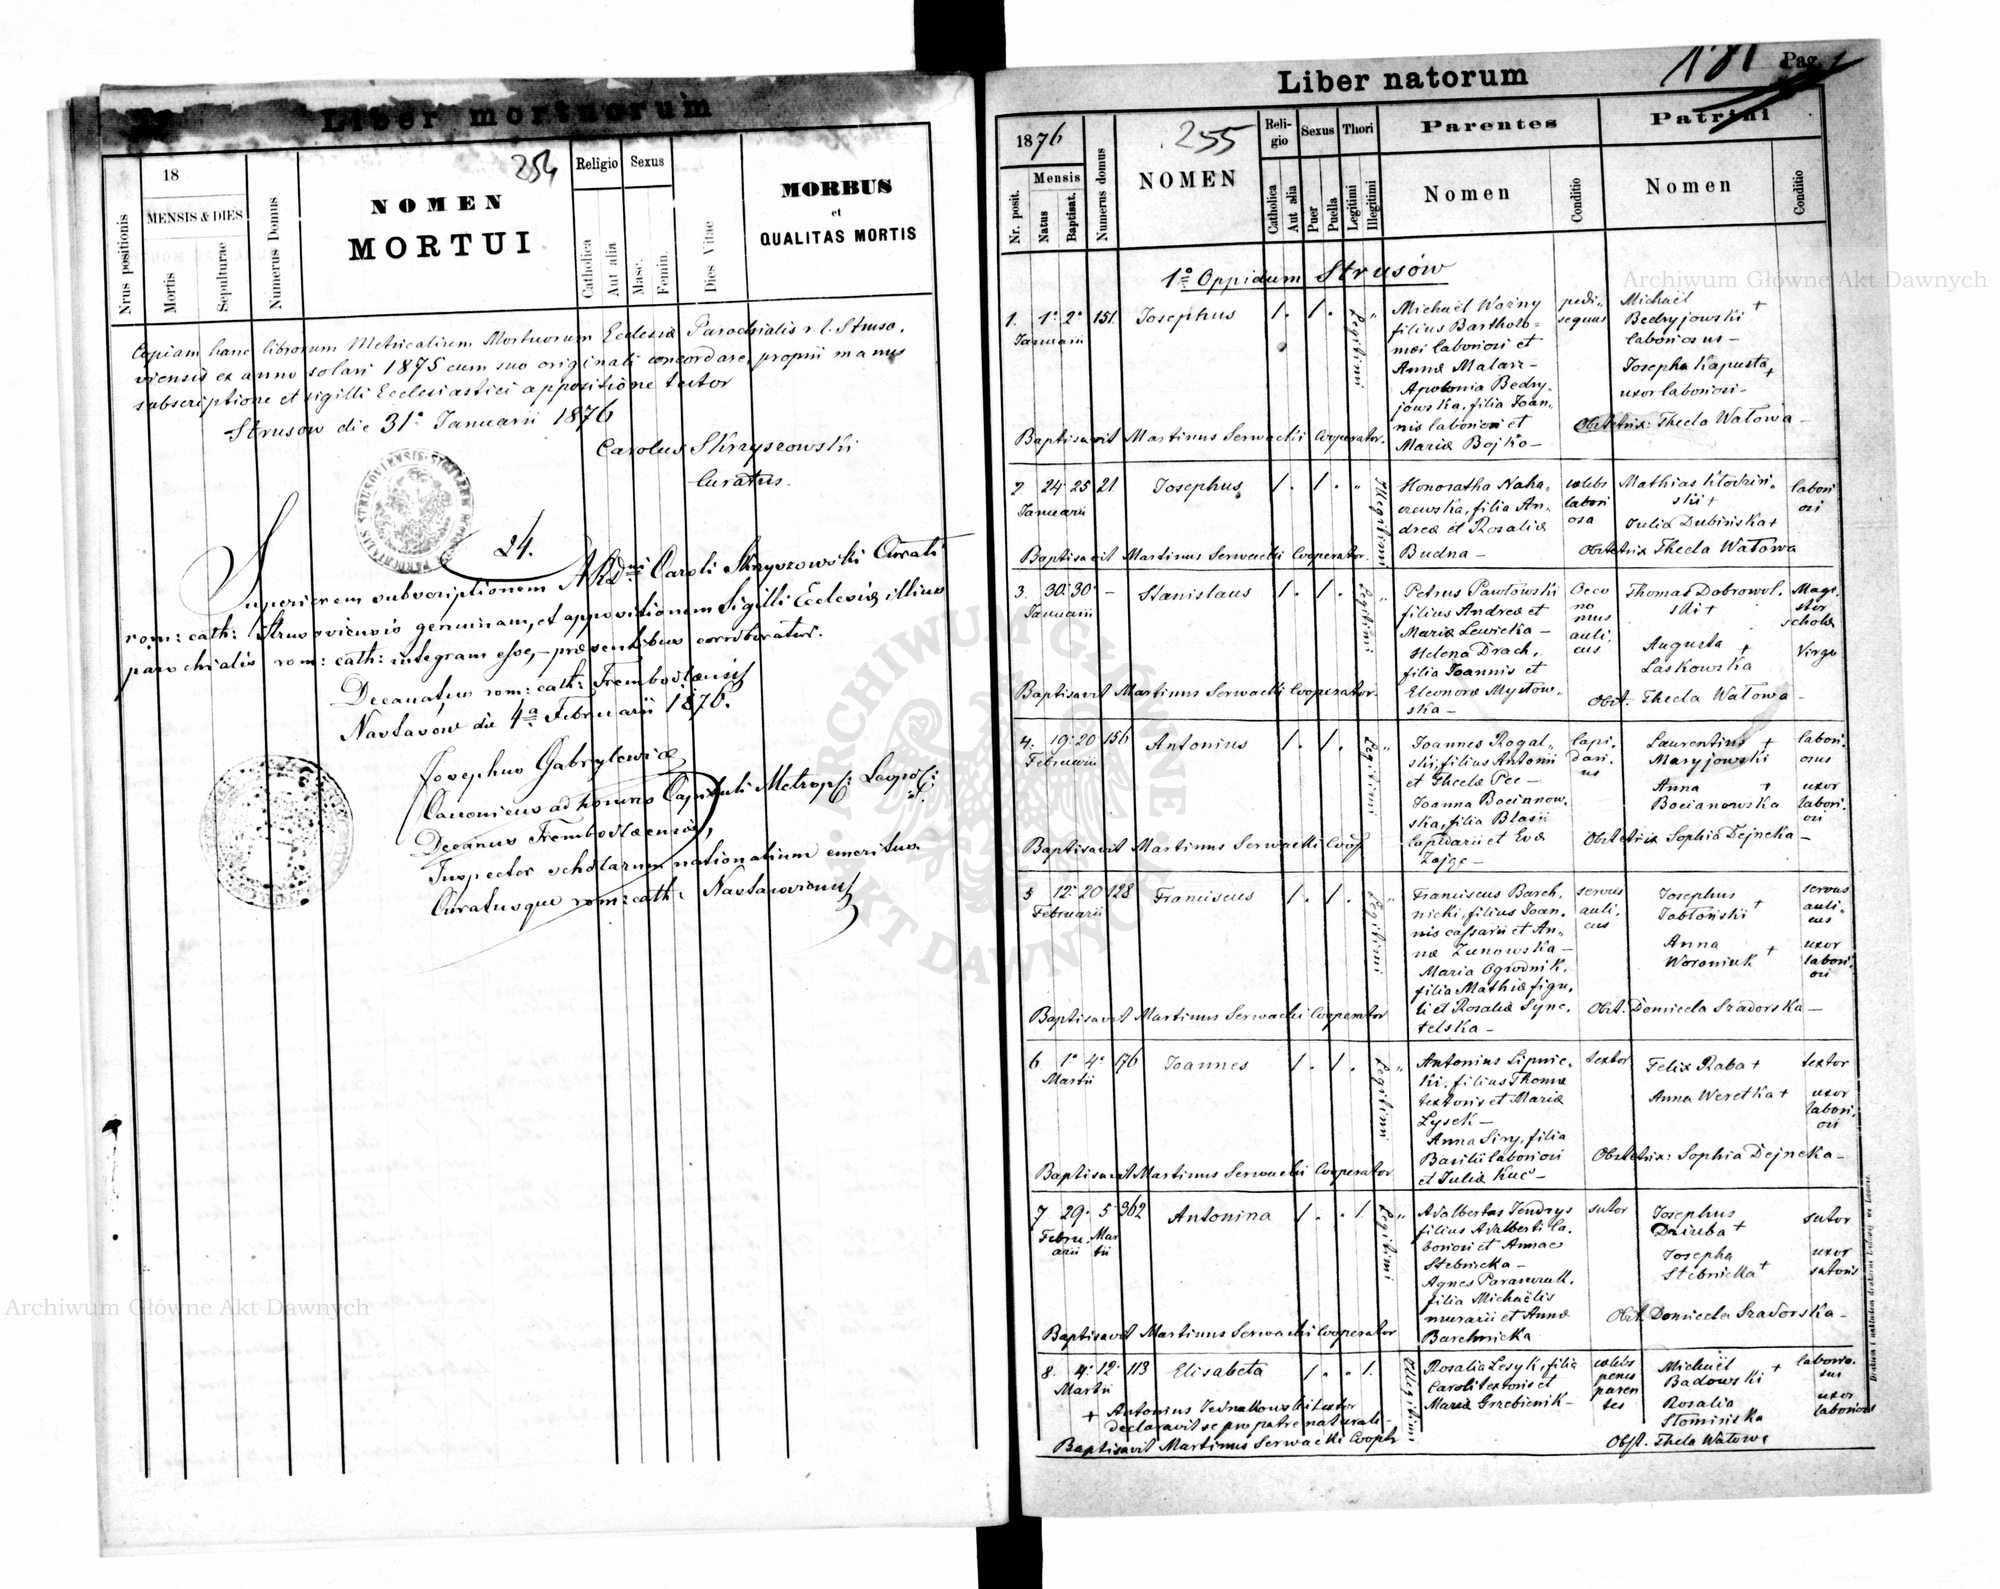 Liber mortuorum
254
18
MENSIS & DIES
Nrus positionis
Mortis
Sepulturae
Numerus Domus
NOMEN
MORTUI
Religio
Catholica
Aut alia
Sexus
Masc.
Femin.
Dies Vitae
MORBUS
et
QUALITAS MORTIS
Copiam hanc librorum Metricalium Mortuorum Ecclesiæ Parochialis r. l. Struso-
viensis ex anno solari 1875 cum suo originali concordare, proprii manus
subscriptione et sigilli Ecclesiastici appositione testor
Strusow die 31a Januarii 1876
Carolus Skrzyszowski
Curatus.
24.
Superiorem subscriptionem ARDni Caroli Skrzyszowski Curati
rom: cath: Strusoviensis genuinam, et appositionem Sigilli Ecclesiæ illius
parochialis rom: cath: integram esse, – præsentibus corroboratur.
Decanatus rom: cath: Trembovlaensis
Nastasow die 4a Februarii 1876.
Josephus Gabrylewicz
Canonicus ad honores Capituli Metropol: Leopol:
Decanus Trembovlaensis,
Inspector scholarum nationalium emeritus
Curatusque rom: cath: Nastasoviensis
Liber natorum
181
Pag.
1876
255
Nr. posit.
Mensis
Natus
Baptisat.
Numerus domus
NOMEN
Religio
Catholica
Aut alia
Sexus
Puer
Puella
Thori
Legitimi
Illegitimi
Parentes
Nomen
Conditio
Patrini
Nomen
Conditio
1o Oppidum Strusów
1. 1a 2a 151. Josephus 1. 1. Legitimi
Januarii
Michaël Woźny
filius Bartholo-
mæi laboriosi et
Annæ Malarz –
Apolonia Bedry-
jowska, filia Joan-
nis laboriosi et
Mariæ Bojko –
pedi-
sequus
Michaël +
Bedryjowski
laboriosus –
Josepha Kapusta +
uxor laboriosi –
Obstetrix: Thecla Watowa –
Baptisavit Martinus Serwacki Cooperator.
2 24. 25 21. Josephus 1. 1. Illegitimi
Januarii
Honoratha Naha-
czewska, filia An-
dreæ et Rosaliæ
Budna –
cælebs
labori
osa
Mathias Kłodzin-
ski +
Julia Dubińska +
labori
osi
Obstetrix Thecla Watowa
Baptisavit Martinus Serwacki Cooperator.
3. 30. 30. – Stanislaus 1. 1. Legitimi
Januarii
Petrus Pawłowski
filius Andreæ et
Mariæ Lewicka –
Helena Drach,
filia Joannis et
Eleonoræ Mysłow-
ska –
Oeco
no
mus
auli
cus
Thomas Dobrowol-
ski +
Augusta +
Laskowska
Magi-
ster
scholæ
Virgo
Obst. Thecla Watowa –
Baptisavit Martinus Serwacki Cooperator.
4. 19. 20. 156 Antonius 1. 1. Legitimi
Februarii
Joannes Rogal-
ski, filius Antonii
et Theclæ Pec –
Joanna Bocianow-
ska, filia Blasii
lapidarii et Evæ
Zając –
Lapi-
dari-
us
Laurentius +
Maryjowski
Anna +
Bocianowska
labori-
osus
uxor
labori-
osi
Obstetrix Sophia Dejneka –
Baptisavit Martinus Serwacki Coop
5 12. 20 128 Franciscus 1. 1. Legitimi
Februarii
Franciscus Barch-
nicki, filius Joan-
nis cassarii et An-
næ Zunowska –
Maria Ogrodnik,
filia Mathiæ figu-
li et Rosaliæ Sync-
telska –
servus
auli-
cus
Josephus +
Jabłoński
Anna +
Woroniuk
servus
auli-
cus
uxor
labori-
osi
Obst. Domicela Szadorska –
Baptisavit Martinus Serwacki Cooperator
6 1. 4. 176 Joannes 1. 1. Legitimi
Martii
Antonius Lipnic-
ki, filius Thomæ
textoris et Mariæ
Lysek –
Anna Siry, filia
Basilii laboriosi
et Juliæ Kuć –
textor
Felix Raba +
Anna Weretka +
textor
uxor
labori-
osi
Obstetrix: Sophia Dejneka –
Baptisavit Martinus Serwacki Cooperator
7 29. 5 362 Antonina 1. 1. Legitimi
Febru- Mar
arii tii
Adalbertus Jendrys
filius Adalberti la-
boriosi et Annae
Stebnicka –
Agnes Paraszczuk,
filia Michaëlis
murarii et Annæ
Barchnicka
sutor
Josephus
Dziuba +
Josepha
Stebnicka +
sutor
uxor
sutoris
Obst. Domicela Szadorska –
Baptisavit Martinus Serwacki Cooperator
8. 4. 12. 113 Elisabeta 1. 1. Illegitimi
Martii
+ Antonius Jednakowski textor
declaravit se pro patre naturali –
Rosalia Lesyk, filia
Caroli textoris et
Mariæ Grzebienik –
cælebs
penes
paren
tes
Michaël +
Badowski
Rosalia
Słomińska
laborio-
sus
uxor
laboriosi
Obst. Thecla Watowa
Baptisavit Martinus Serwacki Cooptr
Archiwum Główne Akt Dawnych
Archiwum Główne Akt Dawnych
ARCHIWUM GŁÓWNE AKT DAWNYCH